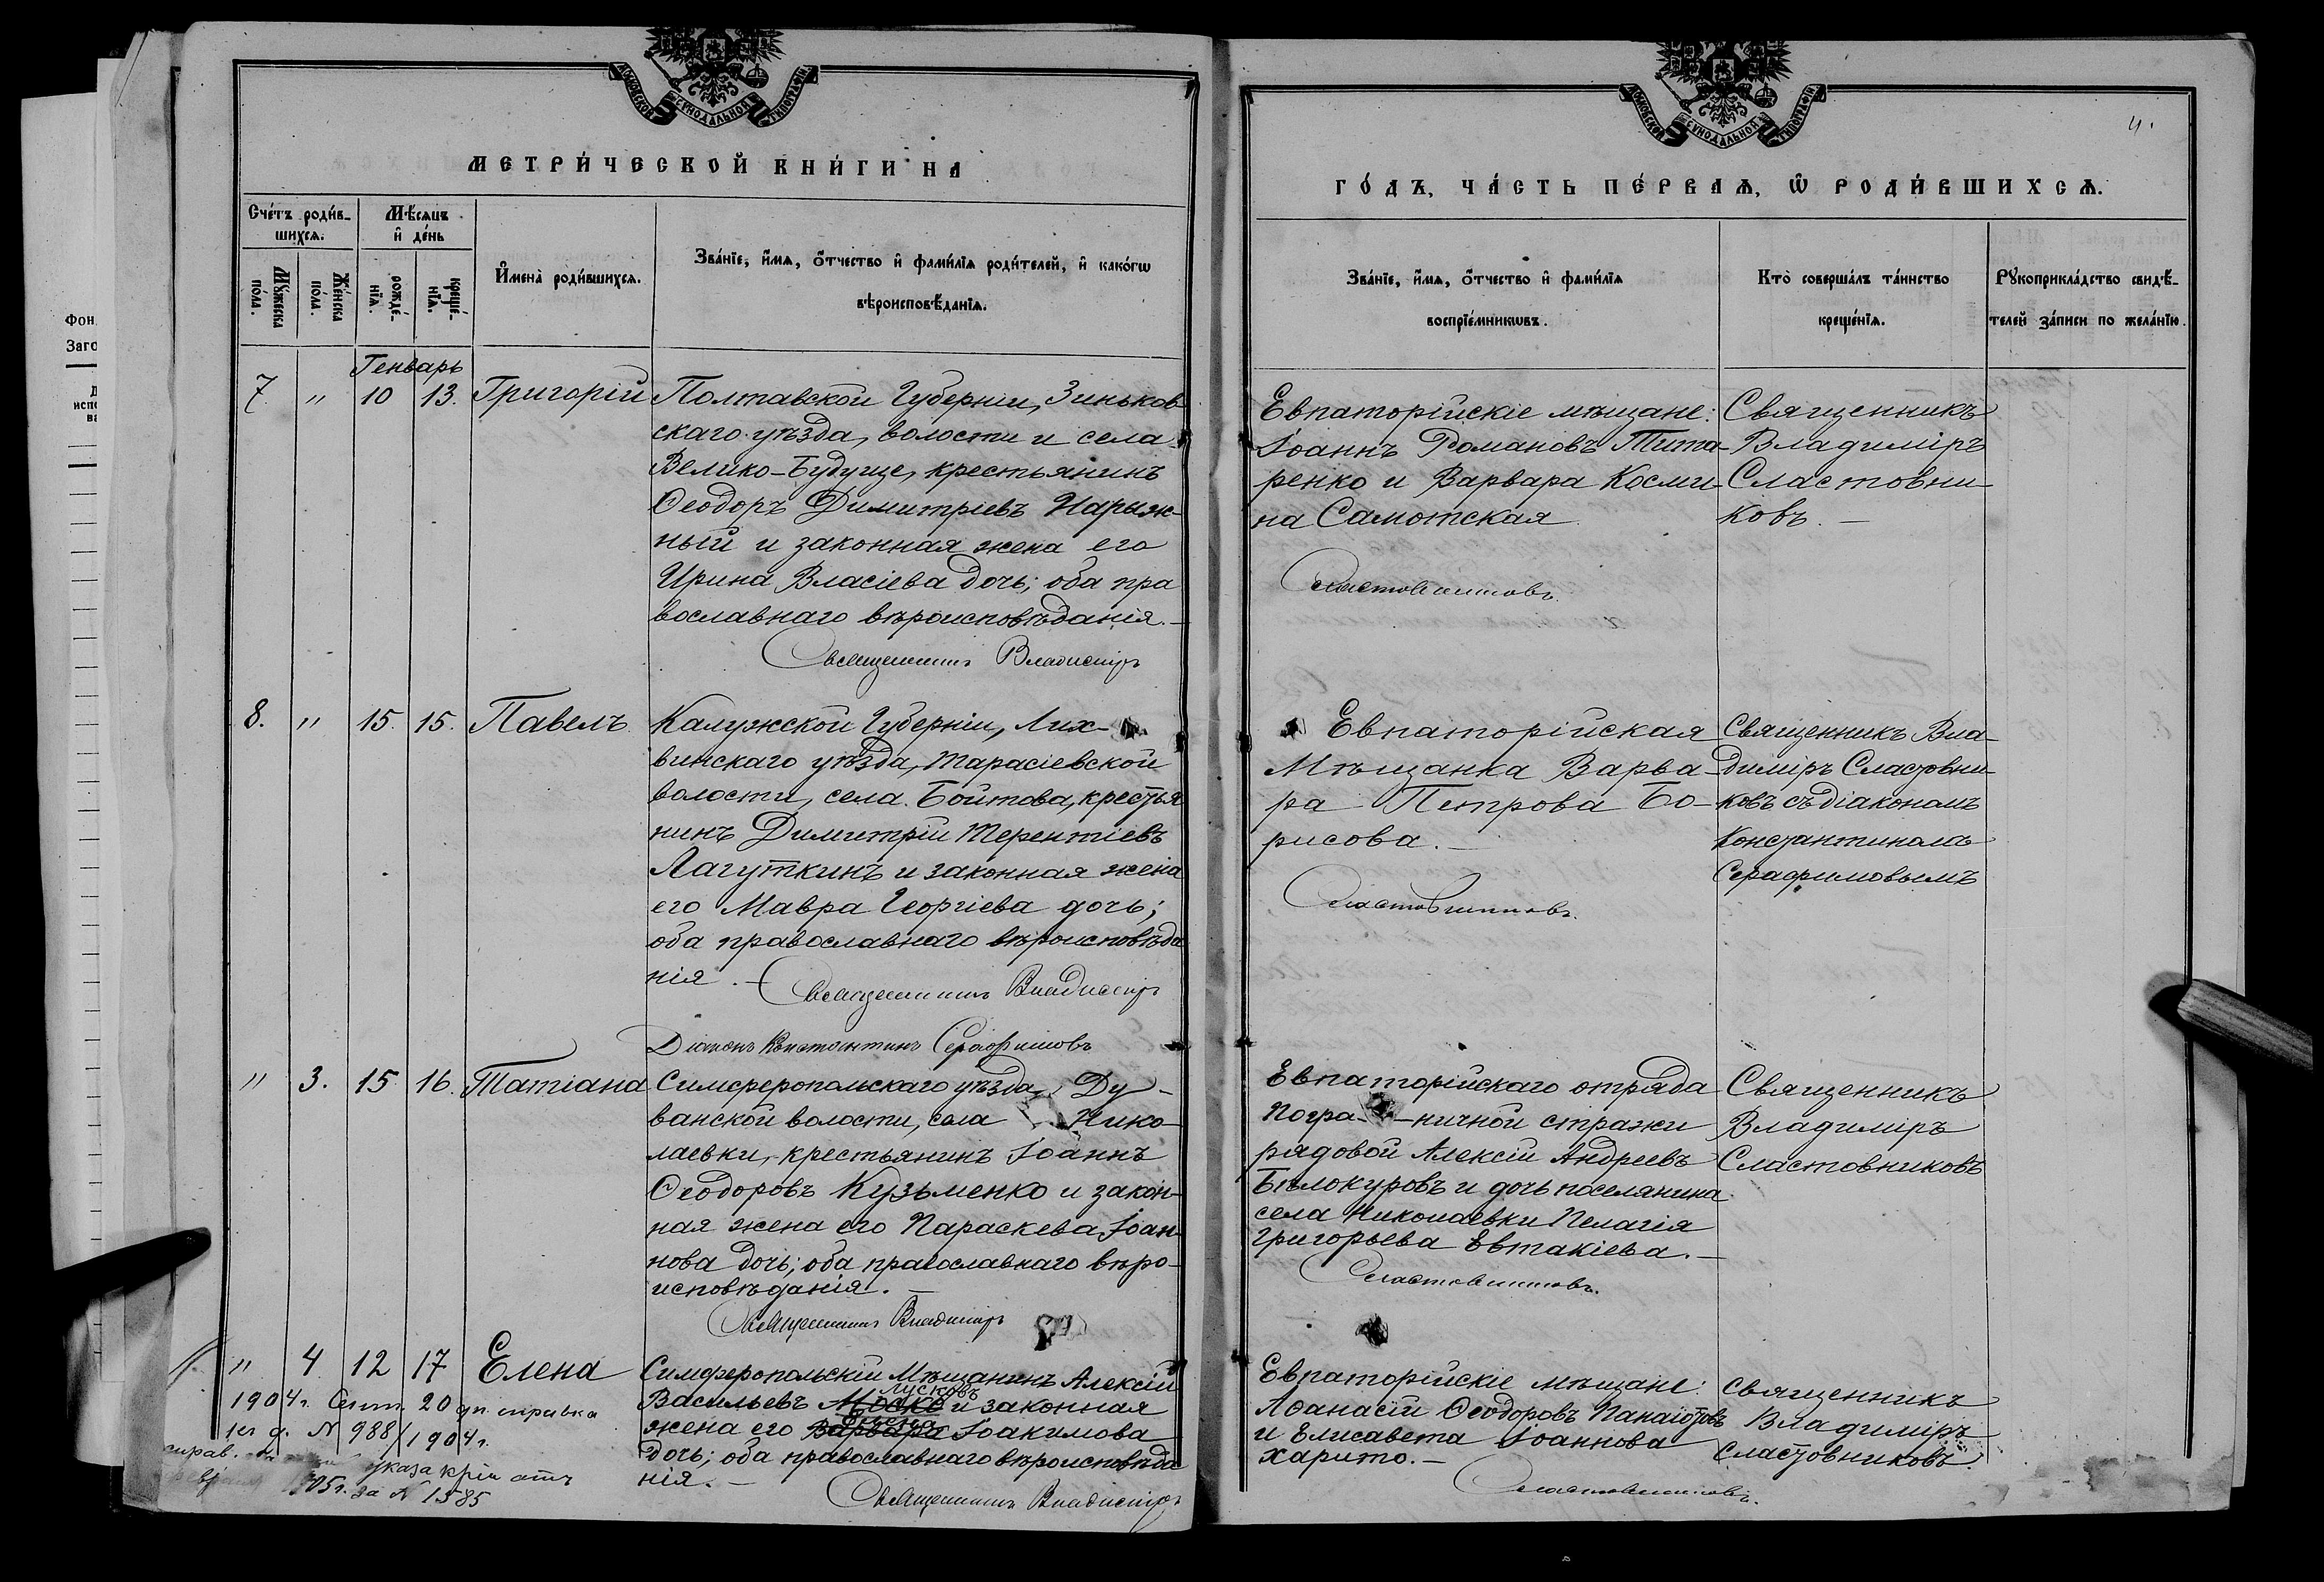 МОСКОВСКОЙ СѴНОДАЛЬНОЙ ТИПОГРАФІИ
МЕТРИ́ЧЕСКОЙ КНИ́ГИ НА
Сче́тъ роди́в-
шихсѧ.
Мѣ́сѧцъ
и҆ де́нь
Мꙋ́жеска
по́ла.
Же́нска
по́ла.
рожде́-
нїѧ.
креще́-
нїѧ.
И҆мена̀ роди́вшихсѧ.
Зва́нїе, и҆́мѧ, ѻ҆́тчество и҆ фами́лїѧ роди́телей, и҆ како́гѡ
вѣроисповѣ́данїѧ.
Генварь
7 " 10 13. Григорій
Полтавской Губерніи, Зиньков-
скаго уѣзда, волости и села
Велико-Будуще, крестьянинъ
Ѳеодоръ Димитріевъ Нарыж-
ный и законная жена его
Ирина Власіева дочь; оба пра
вославнаго вѣроисповѣданія. —
Священникъ Владиміръ
8. " 15. 15. Павелъ
Калужской Губерніи, Лих-
винскаго уѣзда, Тарасіевской
волости, села Бойтова, крестья
нинъ Димитрій Терентіевъ
Лагуткинъ и законная жена
его Мавра Георгіева дочь;
оба православнаго вѣроисповѣда
нія. —
Священникъ Владиміръ
Діаконъ Константинъ Серафимовъ
" 3. 15. 16. Татіана
Симферопольскаго уѣзда, Ду-
ванской волости, села Нико-
лаевки, крестьянинъ Іоаннъ
Ѳеодоровъ Кузьменко и закон-
ная жена его Параскева Іоан-
нова дочь; оба православнаго вѣро-
исповѣданія. —
Священникъ Владиміръ
" 4 12 17 Елена
Симферопольскій Мѣщанинъ Алексій
Лусковъ
Васильевъ и законная
Елена
жена его Варвара Іоакимова
дочь; оба православнаго вѣроисповѣда
нія. —
Священникъ Владиміръ
1904 г. Сент. 20 дн. справка
N 988/1904 г.
справ. указа кріи отъ
1905 г. за N 1585
Фон
Заго
МОСКОВСКОЙ СѴНОДАЛЬНОЙ ТИПОГРАФІИ
4.
ГО́ДЪ, ЧА́СТЬ ПЕ́РВАѦ, Ѽ РОДИ́ВШИХСѦ.
Зва́нїе, и҆́мѧ, ѻ҆́тчество и҆ фами́лїѧ
воспрїе́мникѡвъ.
Кто̀ соверша́лъ та́инство
креще́нїѧ.
Рꙋкоприкла́дство свидѣ́-
телей за́писи по жела́нїю.
Евпаторійскіе мѣщане:
Іоаннъ Романовъ Тита-
ренко и Варвара Косми-
на Самотская
Сластовниковъ.
Священникъ
Владиміръ
Сластовни-
ковъ. —
Евпаторійская
Мѣщанка Варва-
ра Петрова Бо-
рисова. —
Сластовниковъ.
Священникъ Вла-
диміръ Сластовни-
ковъ съ діакономъ
Константиномъ
Серафимовымъ
Евпаторійскаго отряда
Погра-ничной стражи
рядовой Алексій Андреевъ
Бѣлокуровъ и дочь поселянина
села Николаевки Пелагія
Григорьева Евтакіева. —
Сластовниковъ.
Священникъ
Владиміръ
Сластовниковъ
Евпаторійскіе мѣщане:
Аѳанасій Ѳеодоровъ Панаіотовъ
и Елисавета Іоаннова
Харито. —
Сластовниковъ.
Священникъ
Владиміръ
Сластовниковъ.